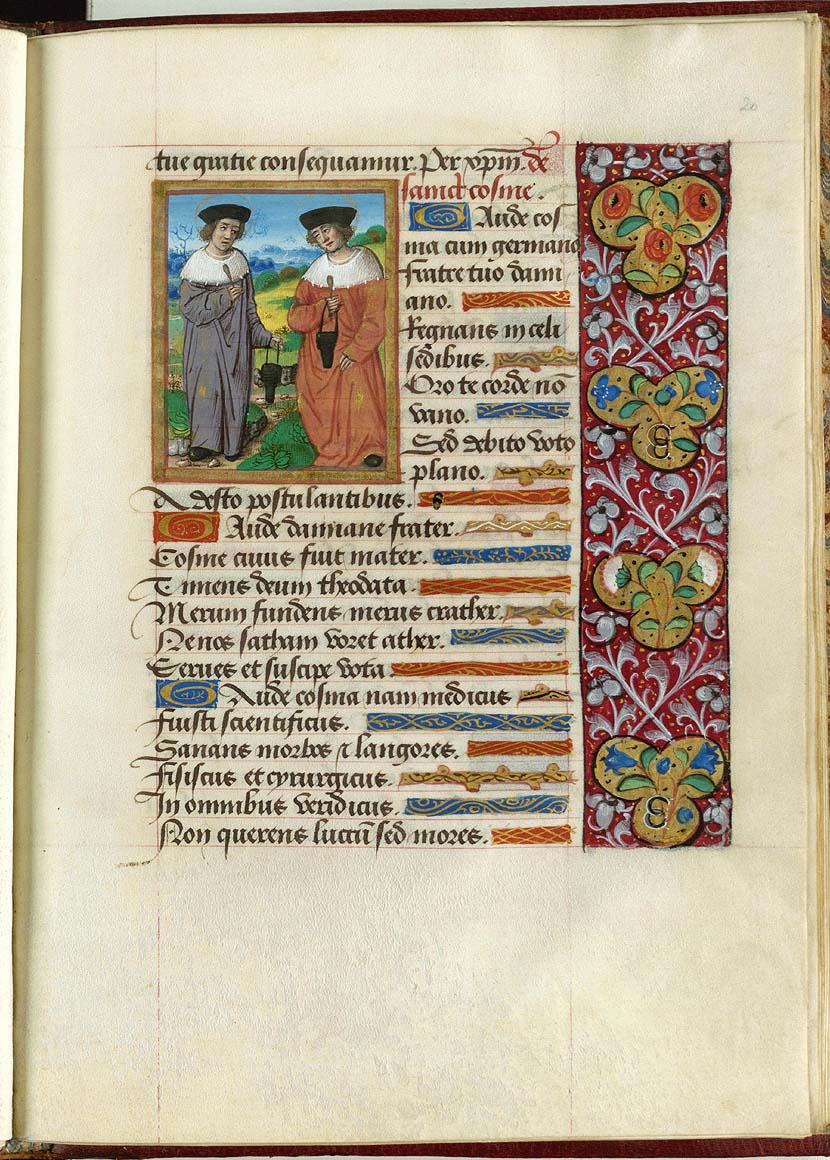 20
tue gratie consequamur. Per xpm̄. de
sancto cosme.
Gaude cos
ma cum germano
fratre tuo dami
ano.
Regnans in celi
sedibus.
Oro te corde nō
vano.
Sed debito voto
plano.
Adesto postulantibus.
Gaude damiane frater.
Cosme cuius fuit mater.
Timens deum theodata.
Merum fundens merus crather.
Ne nos satham voret ather.
Serues et suscipe vota.
Gaude cosma nam medicus
fuisti scientificus.
Sanans morbos ⁊ langores.
fisicus et cyrurgicus.
In omnibus veridicus.
Non querens lucrū sed mores.